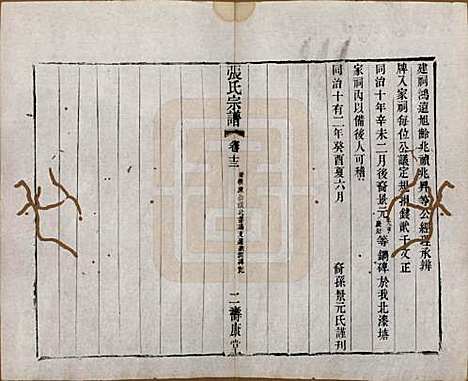 建祠鴻遠旭齡兆禎兆昇等公經理承辦
牌入家祠每位公議定規捐錢貳千文正
同治十年辛未二月後裔景元等鐫碑於我北漆塘
家祠內以備後人可稽
同治十有二年癸酉夏六月
裔孫景元氏謹刊
張氏宗譜
卷十三
二 壽康堂